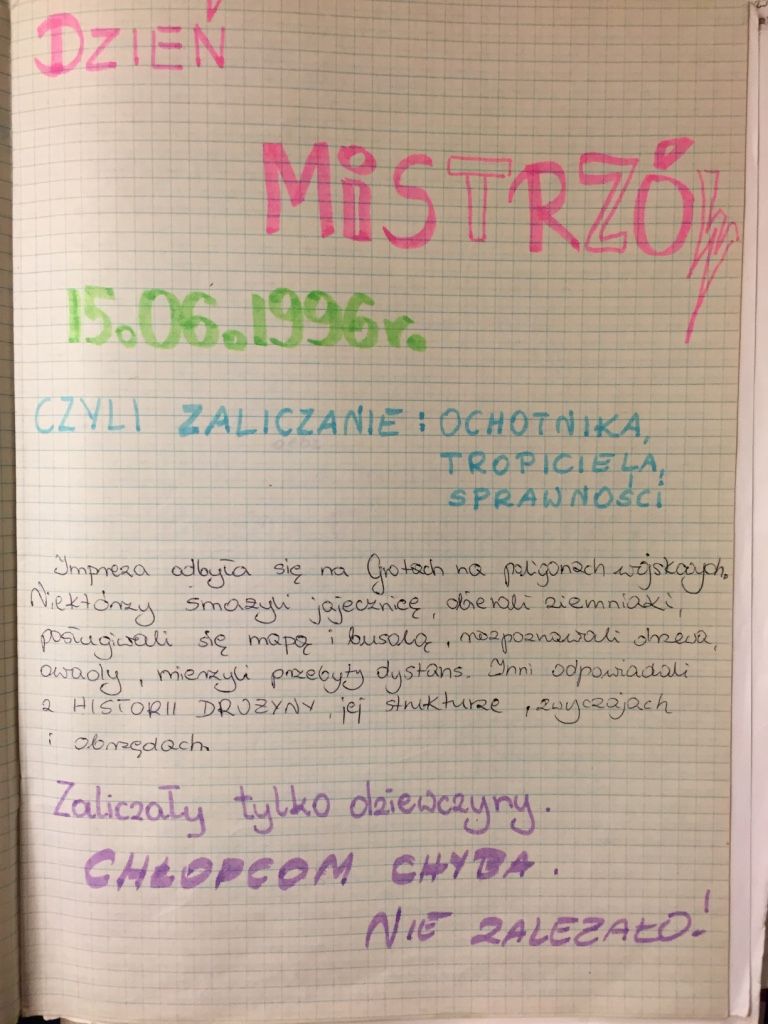 DZIEŃ
MiSTRZÓW
15.06.1996r.
CZYLI ZALICZANIE : OCHOTNIKA,
TROPICIELA,
SPRAWNOŚCI
Impreza odbyła się na Grotach na poligonach wojskowych.
Niektórzy smażyli jajecznicę, obierali ziemniaki,
posługiwali się mapą i busolą, rozpoznawali drzewa,
owady, mierzyli przebyty dystans. Inni odpowiadali
z HISTORII DRUŻYNY, jej strukturze, zwyczajach
i obrzędach.
Zaliczały tylko dziewczyny.
CHŁOPCOM CHYBA.
NIE ZALEŻAŁO!